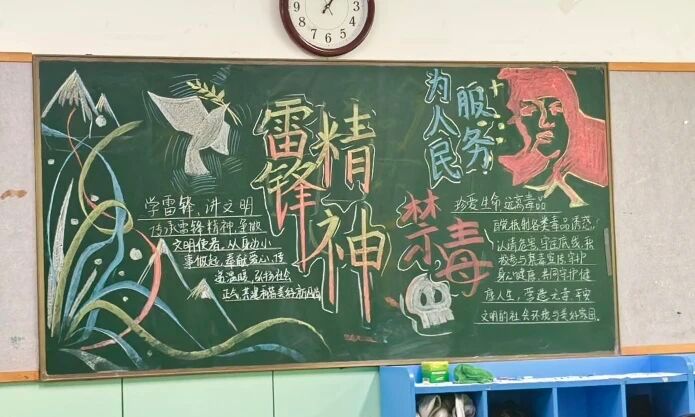 雷锋
精神
为人民
服务
学雷锋,讲文明
传承雷锋精神,争做
文明使者,从身边小
事做起,奉献爱心,传
递温暖,弘扬社会
正气,共建和谐美好
禁毒
珍爱生命,远离毒品
自觉抵制各类毒品诱惑,
认清危害,守牢底线,积
极参与禁毒宣传,守护
身心健康,共同守护健
康人生,营造无毒、平安
文明的社会环境与美好家园。
7
6
5
4
3
8